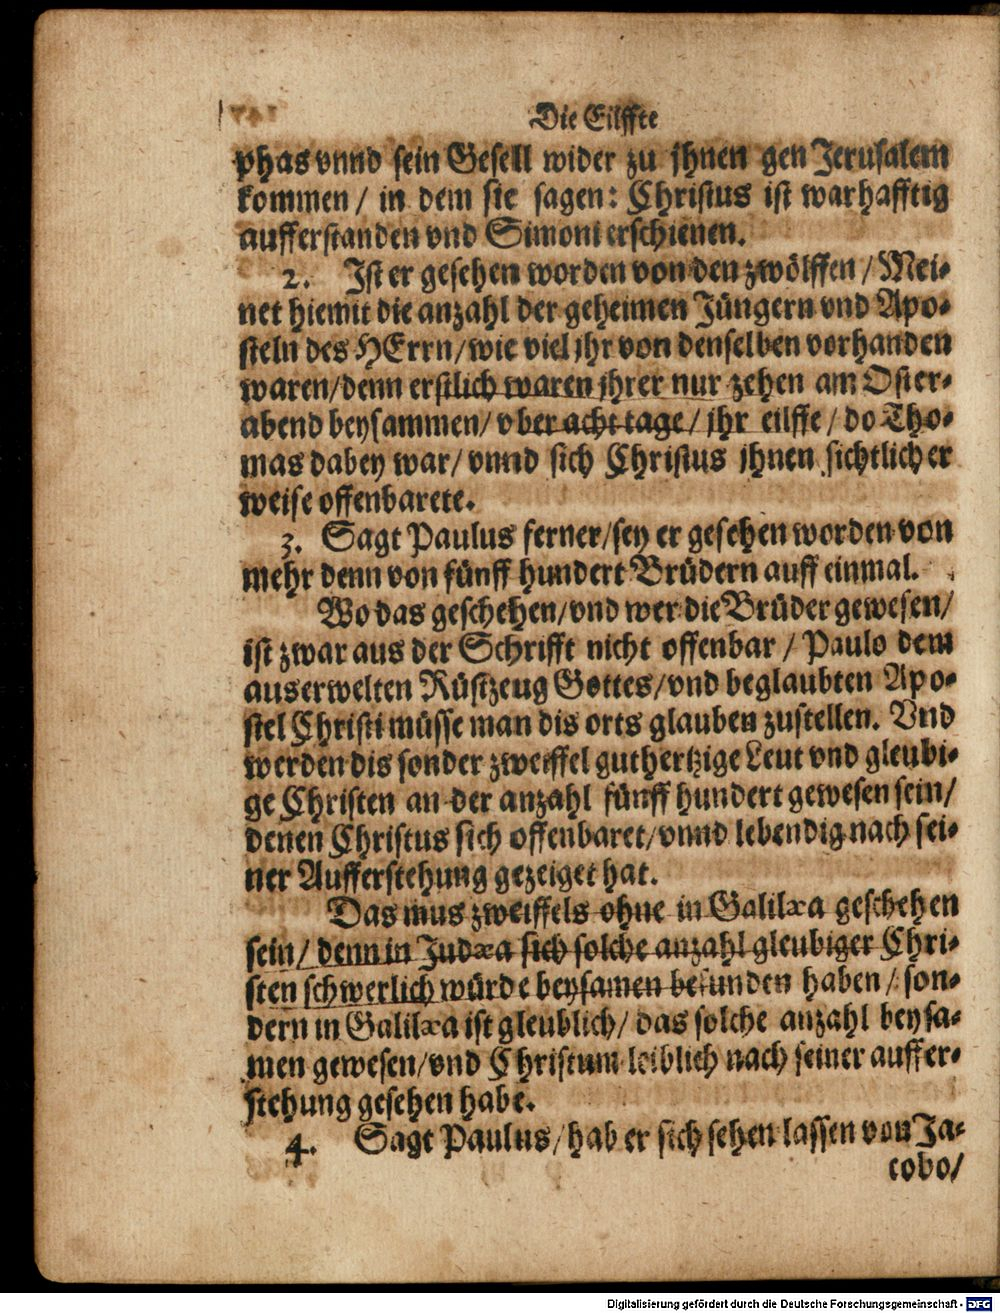 Die Eilffte
phas vnnd sein Gesell wider zu jhnen gen Jerusalem
kommen / in dem sie sagen: Christus ist warhafftig
aufferstanden vnd Simoni erschienen.
2. Ist er gesehen worden von den zwölffen / Mei-
net hiemit die anzahl der geheimen Jüngern vnd Apo-
steln des HErrn / wie viel jhr von denselben vorhanden
waren / denn erstlich waren jhrer nur zehen am Oster-
abend beysammen / vber acht tage / jhr eilffe / do Tho-
mas dabey war / vnnd sich Christus jhnen sichtlicher
weise offenbarete.
3. Sagt Paulus ferner / sey er gesehen worden von
mehr denn von fünff hundert Brüdern auff einmal.
Wo das geschehen / vnd wer die Brüder gewesen /
ist zwar aus der Schrifft nicht offenbar / Paulo dem
auserwelten Rüstzeug Gottes / vnd beglaubten Apo-
stel Christi müsse man dis orts glauben zustellen. Vnd
werden dis sonder zweiffel guthertzige Leut vnd gleubi-
ge Christen an der anzahl fünff hundert gewesen sein /
denen Christus sich offenbaret / vnnd lebendig nach sei-
ner Aufferstehung gezeiget hat.
Das mus zweiffels ohne in Galilæa geschehen
sein / denn in Judæa sich solche anzahl gleubiger Chri-
sten schwerlich würde beysamen befunden haben / son-
dern in Galilæa ist gleublich / das solche anzahl beysa-
men gewesen / vnd Christum leiblich nach seiner auffer-
stehung gesehen habe.
4. Sagt Paulus / hab er sich sehen lassen von Ja-
cobo /
Digitalisierung gefördert durch die Deutsche Forschungsgemeinschaft - DFG